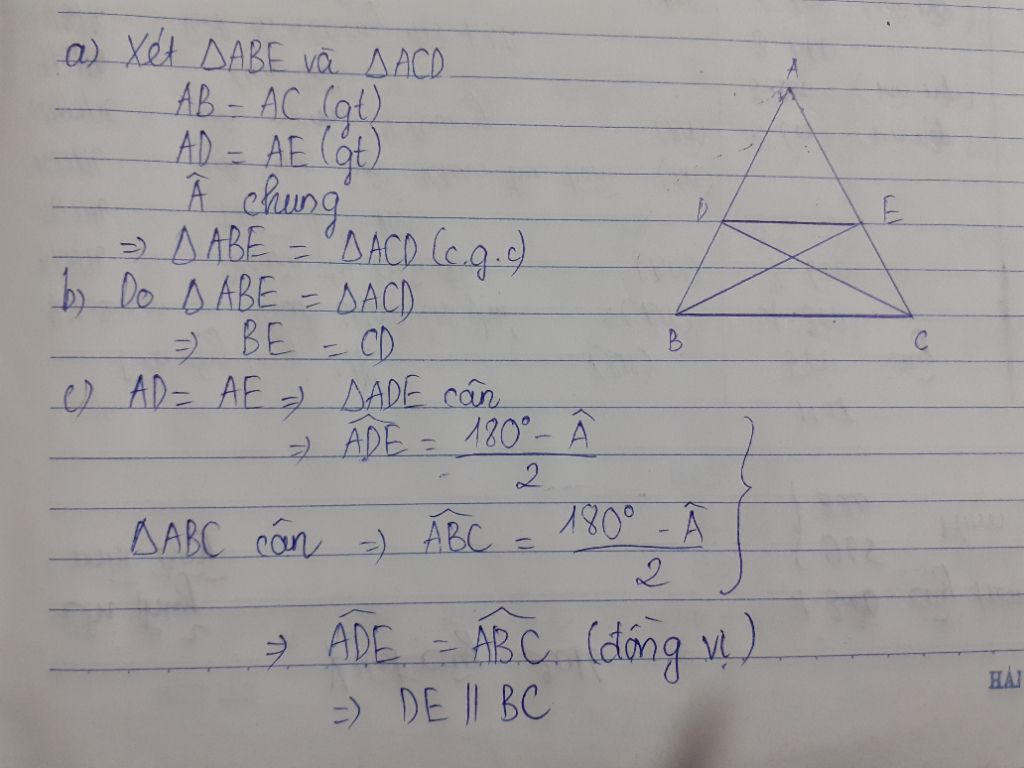 a) Xét ΔABE và ΔACD
AB = AC (gt)
AD = AE (gt)
Â chung
=> ΔABE = ΔACD (c.g.c)
b) Do ΔABE = ΔACD
=> BE = CD
c) AD = AE => ΔADE cân
=> \widehat{ADE} = \frac{180° - Â}{2}
ΔABC cân => \widehat{ABC} = \frac{180° - Â}{2}
=> \widehat{ADE} = \widehat{ABC} (đồng vị)
=> DE || BC
A
D E
B C
HẢI